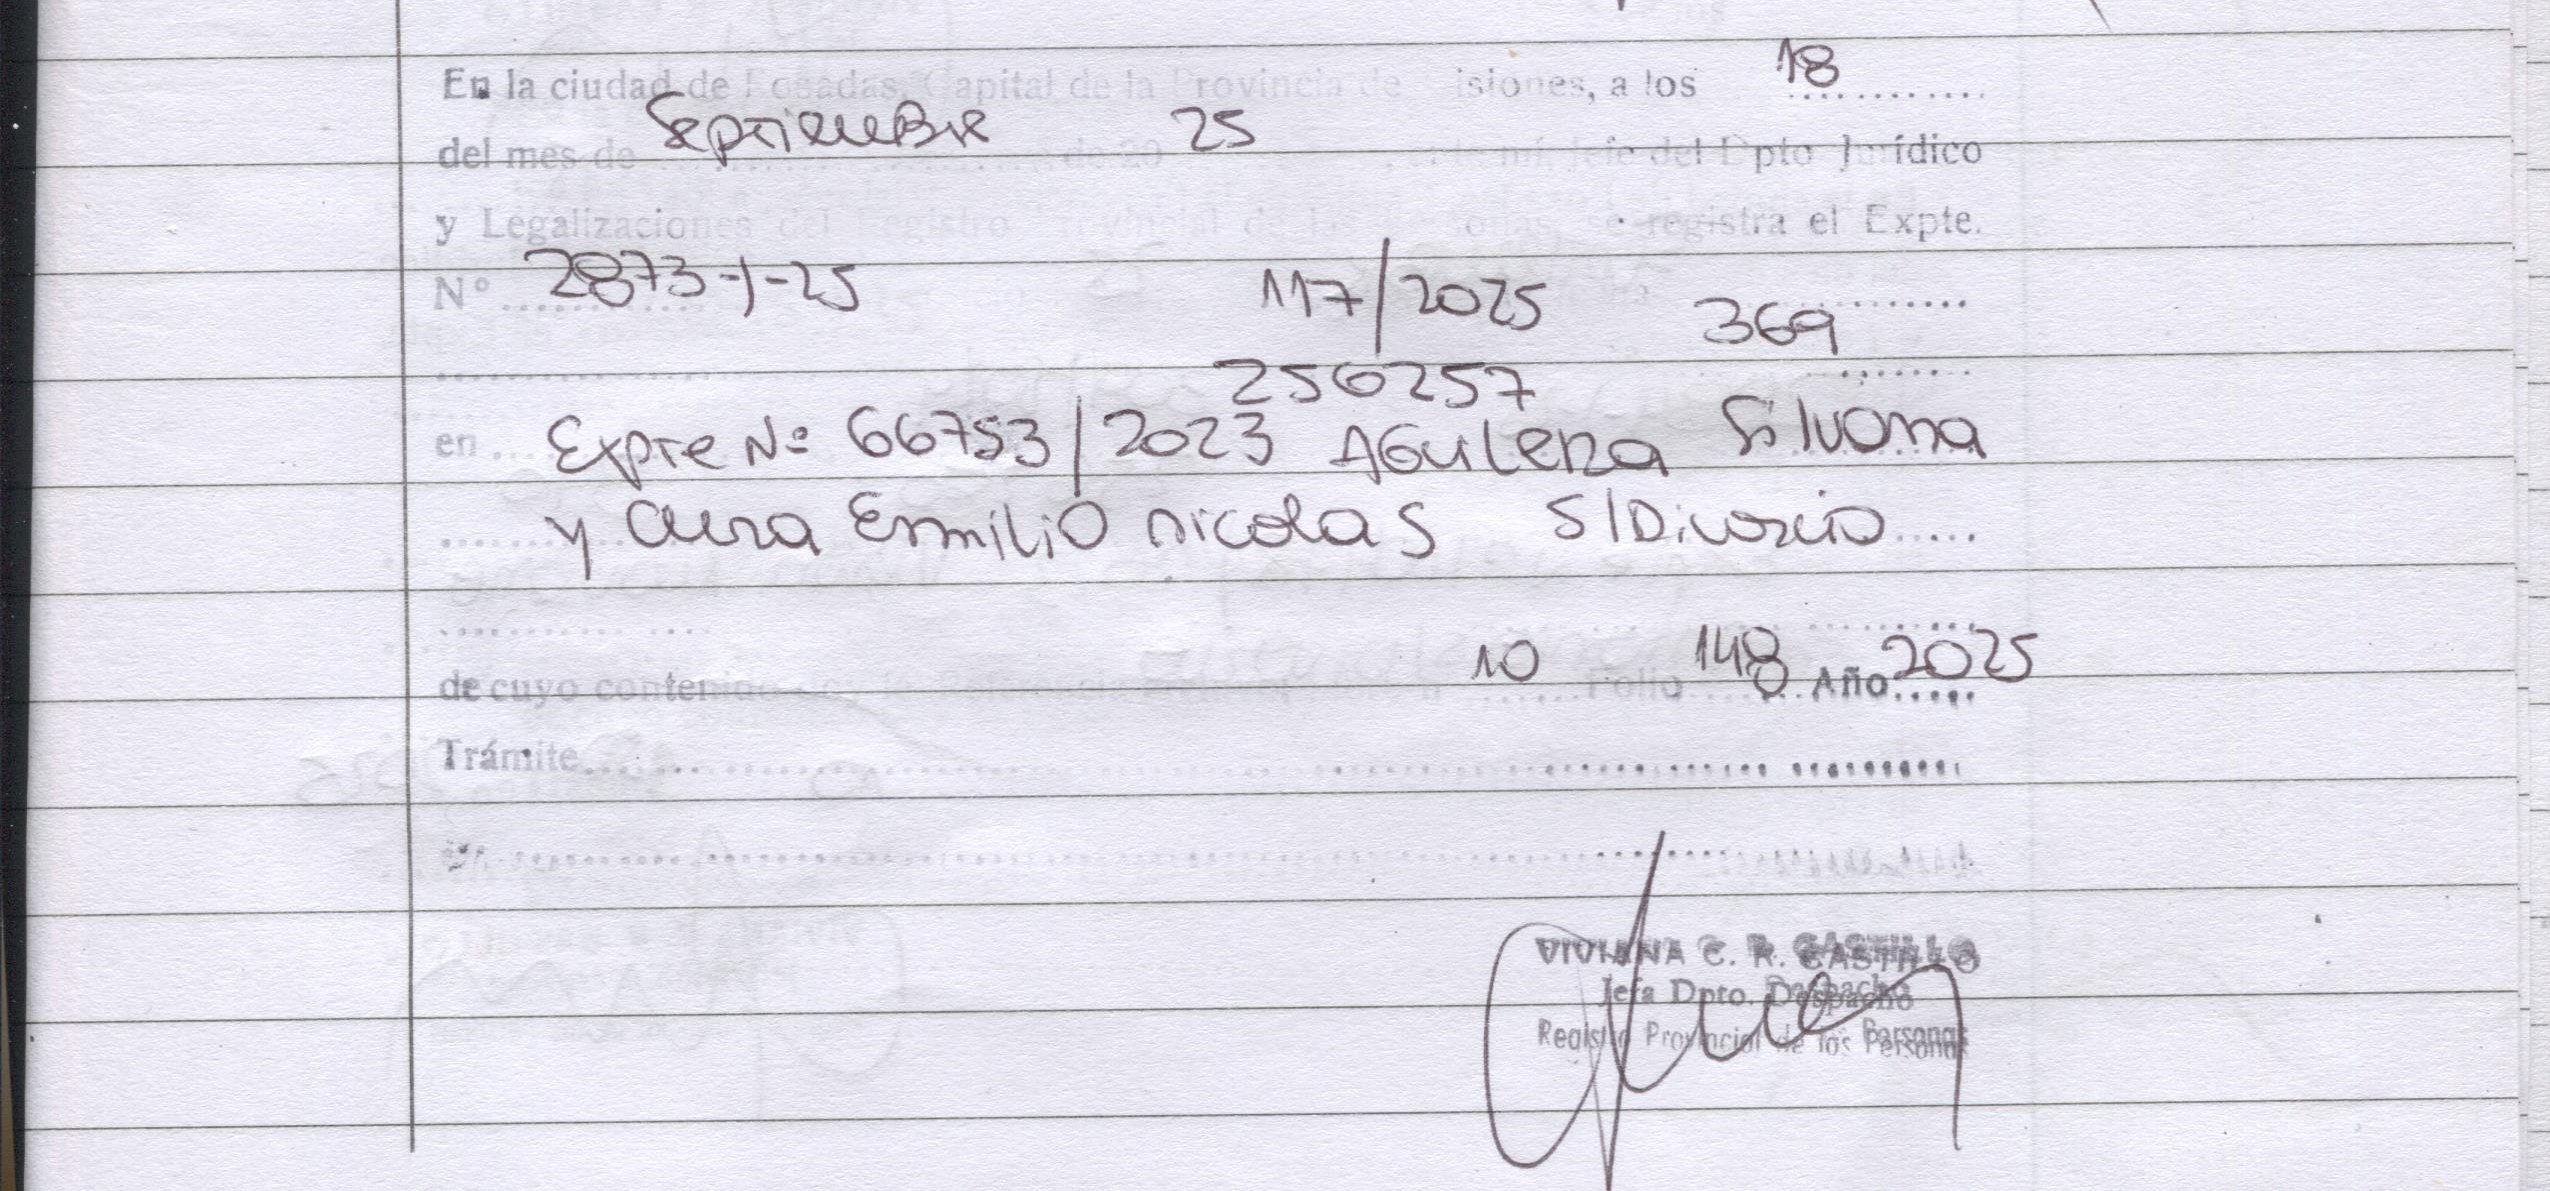 En la ciudad de Posadas, Capital de la Provincia de isiones, a los 18
del mes de Septiembre de 20 25 mí, Jefe del Dpto Jurídico
y Legalizaciones del Registro Provincial de las onas, se registra el Expte.
Nº 2873-1-25 117/2025 369
256257
en Expte Nº 66753/2023 Aguilera Silvana
y Cura Emilio Nicolas S/Divorcio
de cuyo contenido 10 Folio 148 Año 2025
Trámite
VIVIANA C. R. CASTILLO
Jefa Dpto. Despacho
Registro Provincial de las Personas